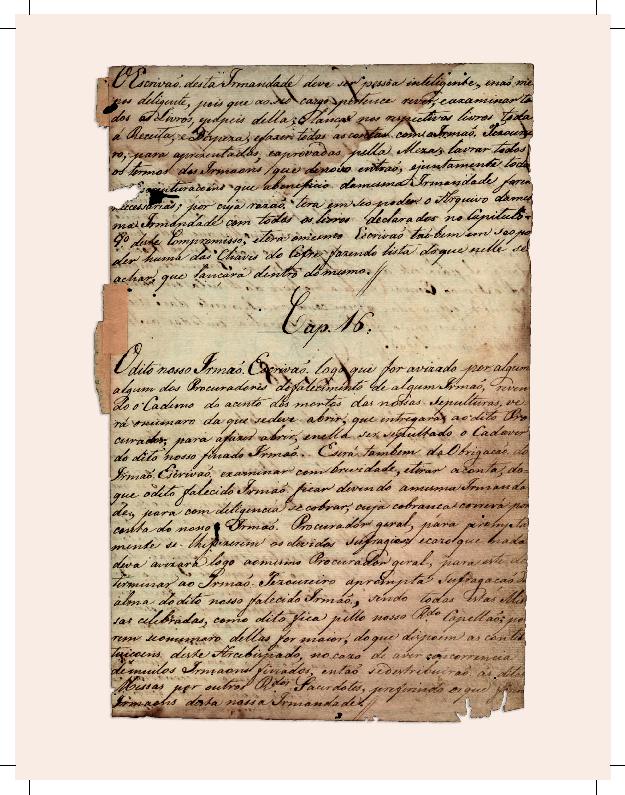 O Escrivaõ desta Irmandade deve ser pessôa inteligente, enaõ me
nos deligente, pois que ao seo cargo pertence rever, eexaminar to
dos os Livros, edepois della; lançar nos respectivos livros toda
á Receita, e Despeza, efazer todos as contas com o Irmaõ Tezourei
ro, para aprezentadas, eaprovadas pella Meza; lavrar todos
os termos dos Irmaons que denovo entraõ, ejuntamente todas
que abeneficio damesma Irmandade forem
necessarias; por cuja razaõ, terá em seo poder o Arquivo dames
ma Irmandade com todos os livros declarados no Capitullo
9º deste Compromisso; eterá omesmo Escrivaõ tãobem em seo po
der huma das Chaves do Cofre, fazendo lista doque nelle se
achar, que lançará dentro domesmo.
Cap. 16.
O dito nosso Irmaõ Escrivaõ logo que for avizado por algum
algum dos Procuradores dofalecimento de algum Irmaõ, reven
do o Caderno do acento dos mortos das nossas Sepulturas, ve
rá onumaro da que sedeve abrir, que intregará ao dito Pro
curador, para afazer abrir, enella ser sepultado o Cadaver
do dito nosso finado Irmaõ. Será tambem da Obrigaçaõ do
Irmaõ Escrivaõ, examinar com brevidade, etirar aconta, do
que odito falecido Irmaõ ficar devendo amesma Irmanda
de, para com deligencia se cobrar, cuja cobrança correrá por
conta do nosso Irmaõ Procurador geral, para prompta
mente se lhe fazerem os devidos sufragios, ecazo que nada
deva avizará logo aomesmo Procurador geral, para este de
terminar ao Irmaõ Tezoureiro aprompta sufragaçaõ
alma dodito nosso falecido Irmaõ, sendo todas estas Mis
sas celebradas, como dito fica pello nosso Rdo Capellaõ; po
rem seonumaro dellas for maior, doque dispoem as consti
tuicoens deste Arcebispado, no cazo de aver concorrencia
demuitos Irmaons finados, entaõ sedestribuiraõ as ditas
Missas por outros Rdos Sacerdotes, preferindo os que forem
Irmaons desta nossa Irmandade.